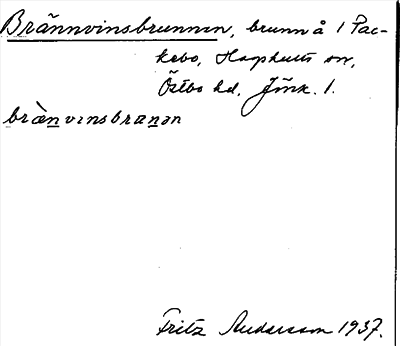 Brännvinsbrunnen, brunn å 1 Pac-
kebo, Hagshults sn,
Östbo hd, Jönk. l.
brænvinsbranən
Fritz Andersson 1937.